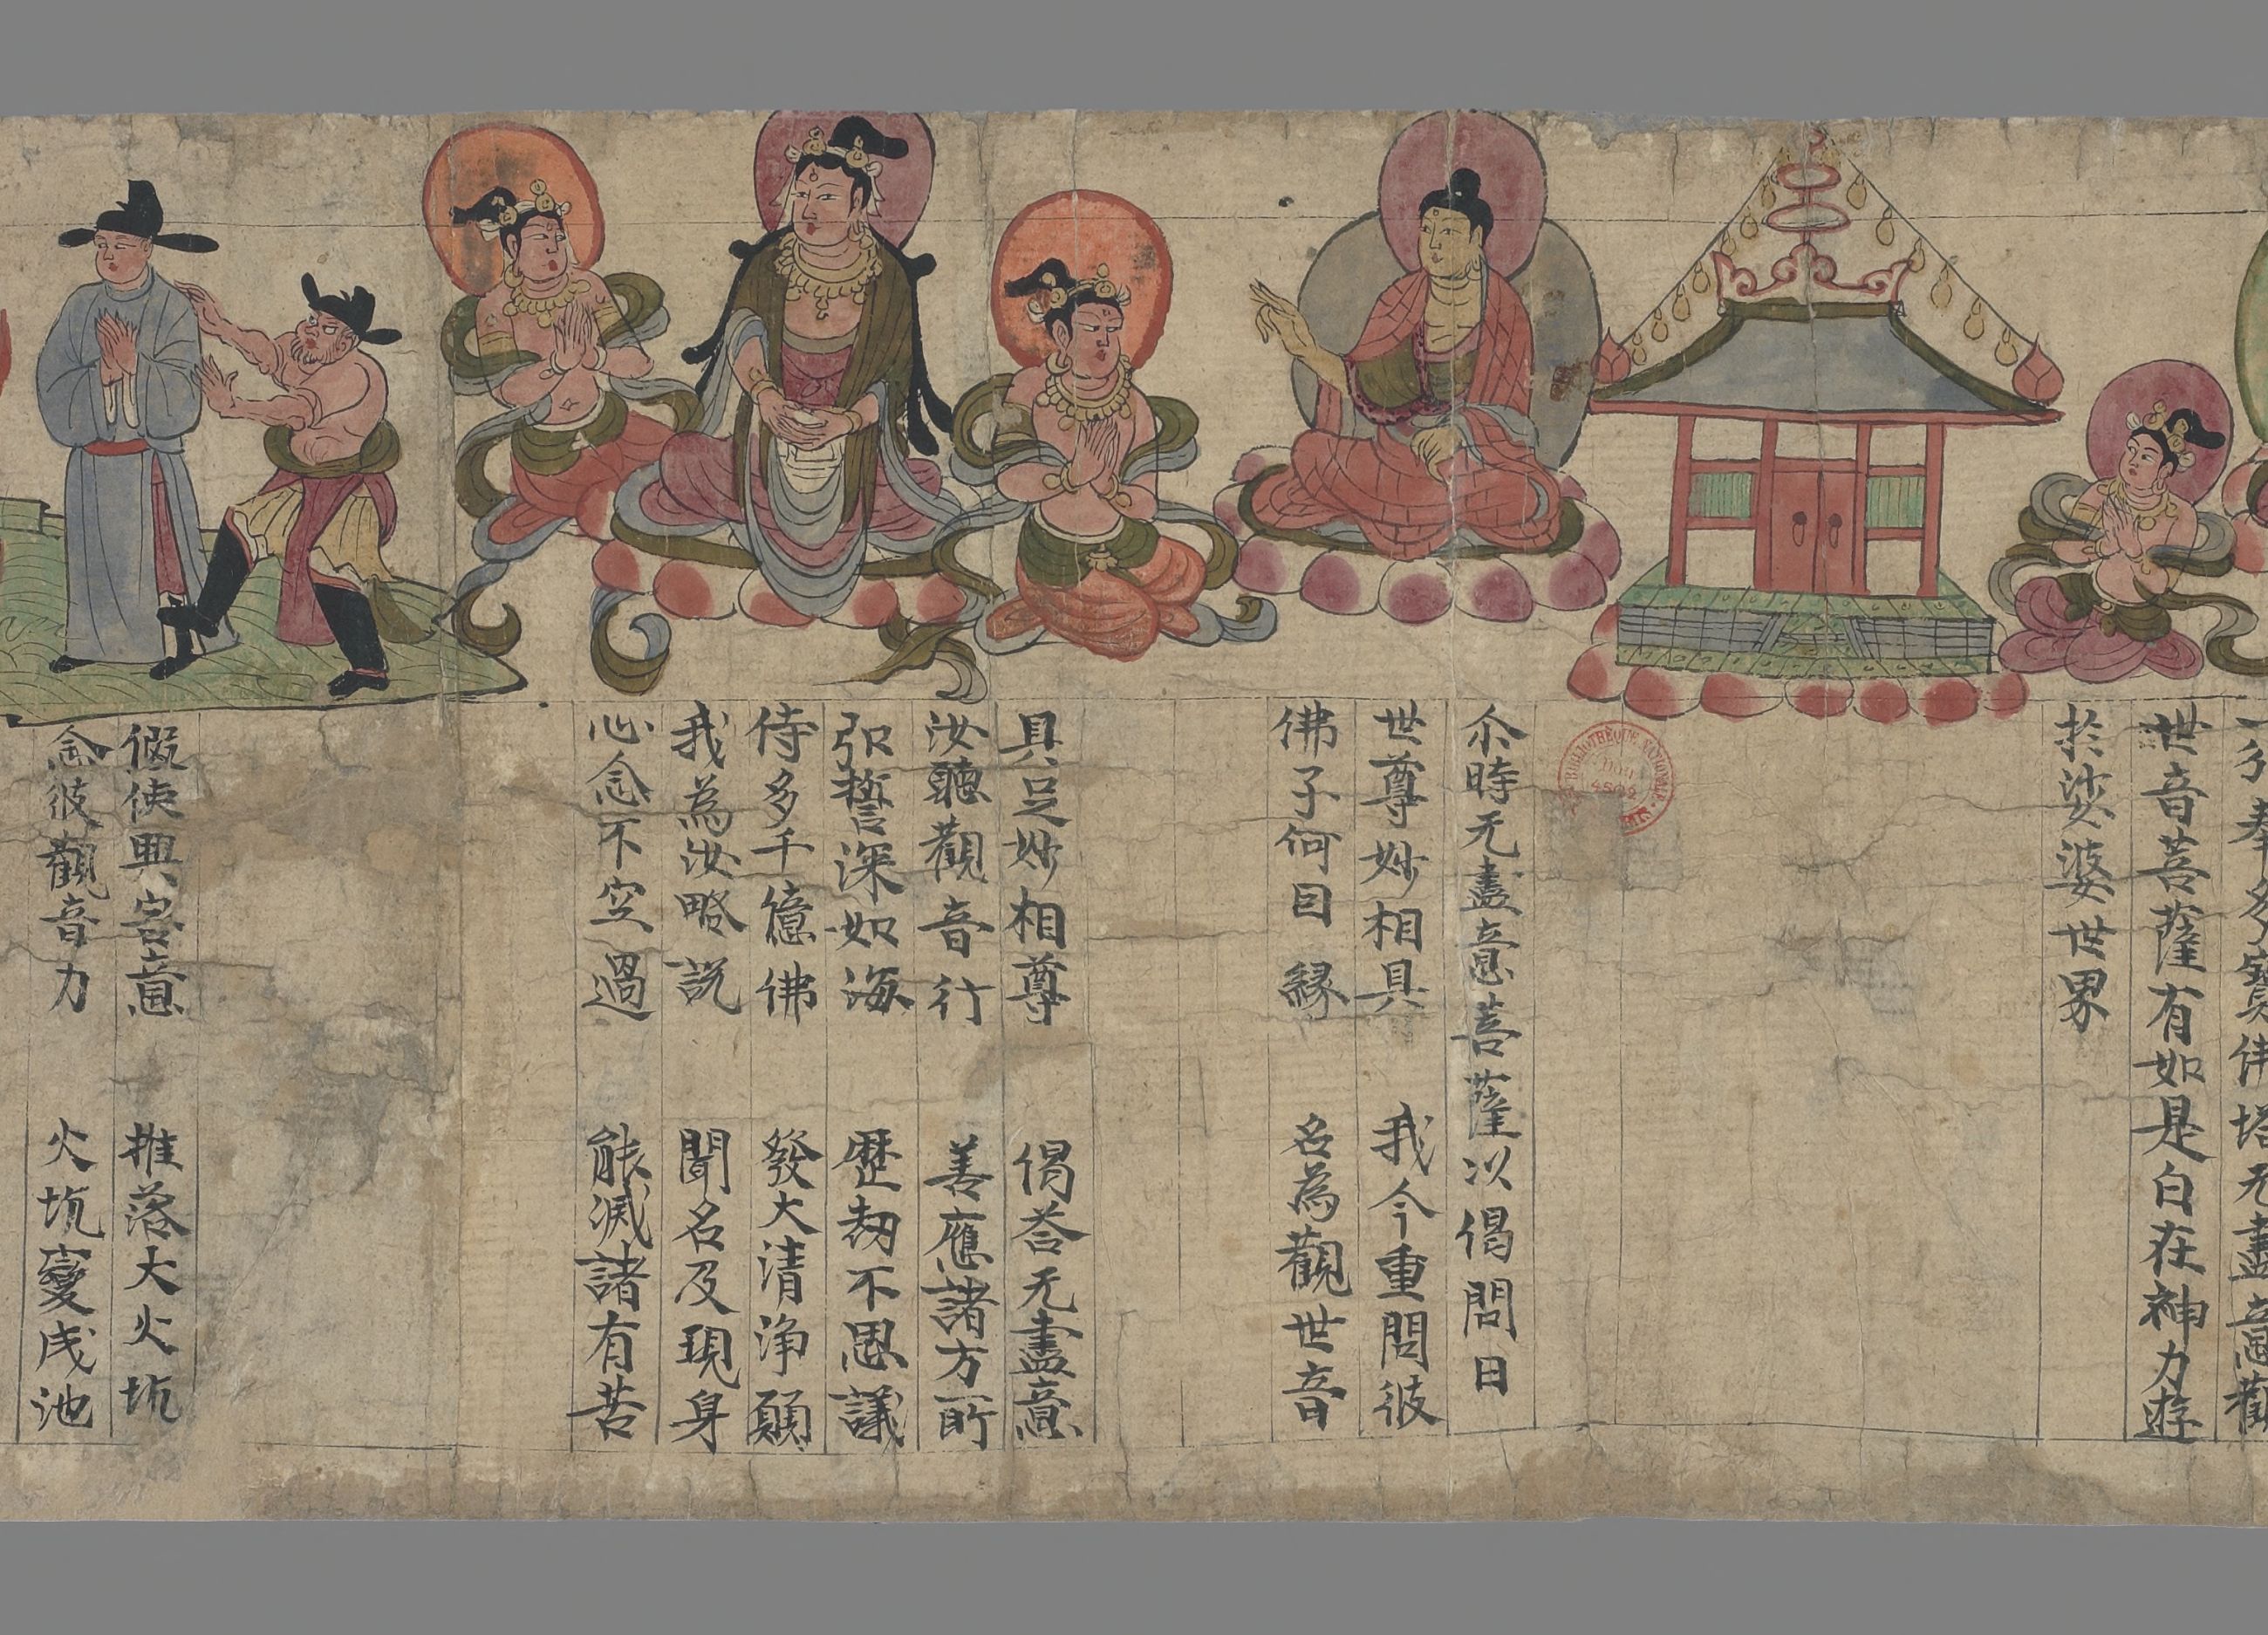 一分奉多寶佛塔无盡意觀
世音菩薩有如是自在神力遊
於娑婆世界
尒時无盡意菩薩以偈問曰
世尊妙相具 我今重問彼
佛子何因緣 名為觀世音
具足妙相尊 偈荅无盡意
汝聽觀音行 善應諸方所
弘誓深如海 歷劫不思議
侍多千億佛 發大清淨願
我為汝略說 聞名及現身
心念不空過 能滅諸有苦
假使興害意 推落大火坑
念彼觀音力 火坑變成池
BIBLIOTHÈQUE NATIONALE
4502